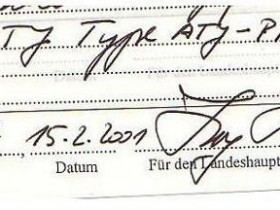 TY Type ATJ-P
15.2.2001
Datum Für den Landeshaupt